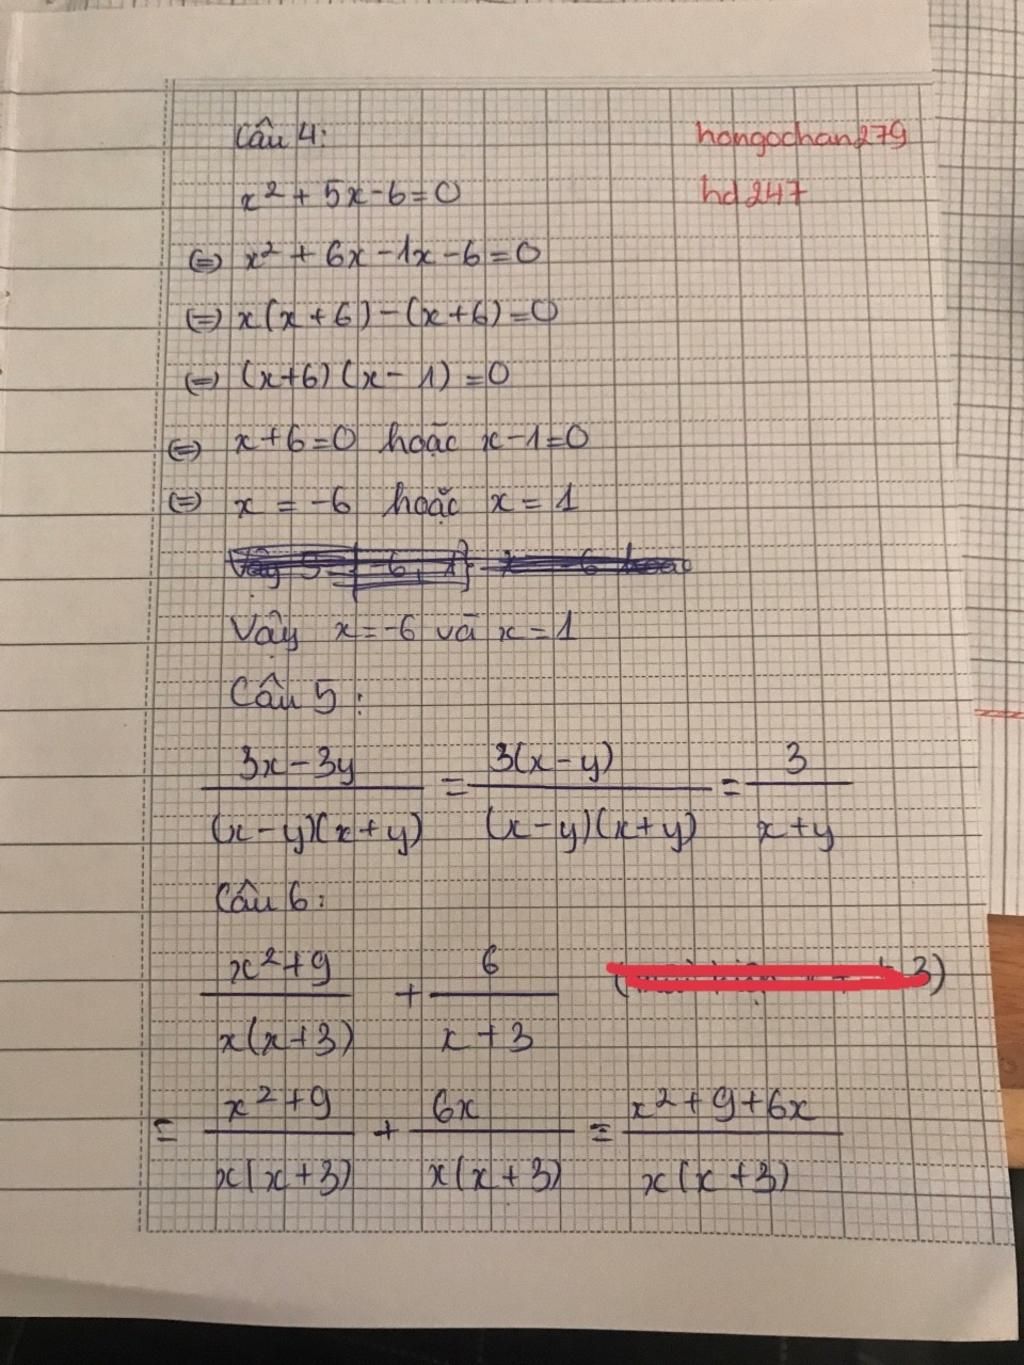 Câu 4:
hongochan279
hd247
x² + 5x - 6 = 0
⇔ x² + 6x - 1x - 6 = 0
⇔ x(x + 6) - (x + 6) = 0
⇔ (x+6)(x - 1) = 0
⇔ x + 6 = 0 hoặc x - 1 = 0
⇔ x = -6 hoặc x = 1
Vậy x = -6 và x = 1
Câu 5:
(3x - 3y)/((x - y)(x + y)) = (3(x - y))/((x - y)(x + y)) = 3/(x + y)
Câu 6:
(x² + 9)/(x(x + 3)) + 6/(x + 3)
= (x² + 9)/(x(x + 3)) + 6x/(x(x + 3)) = (x² + 9 + 6x)/(x(x + 3))